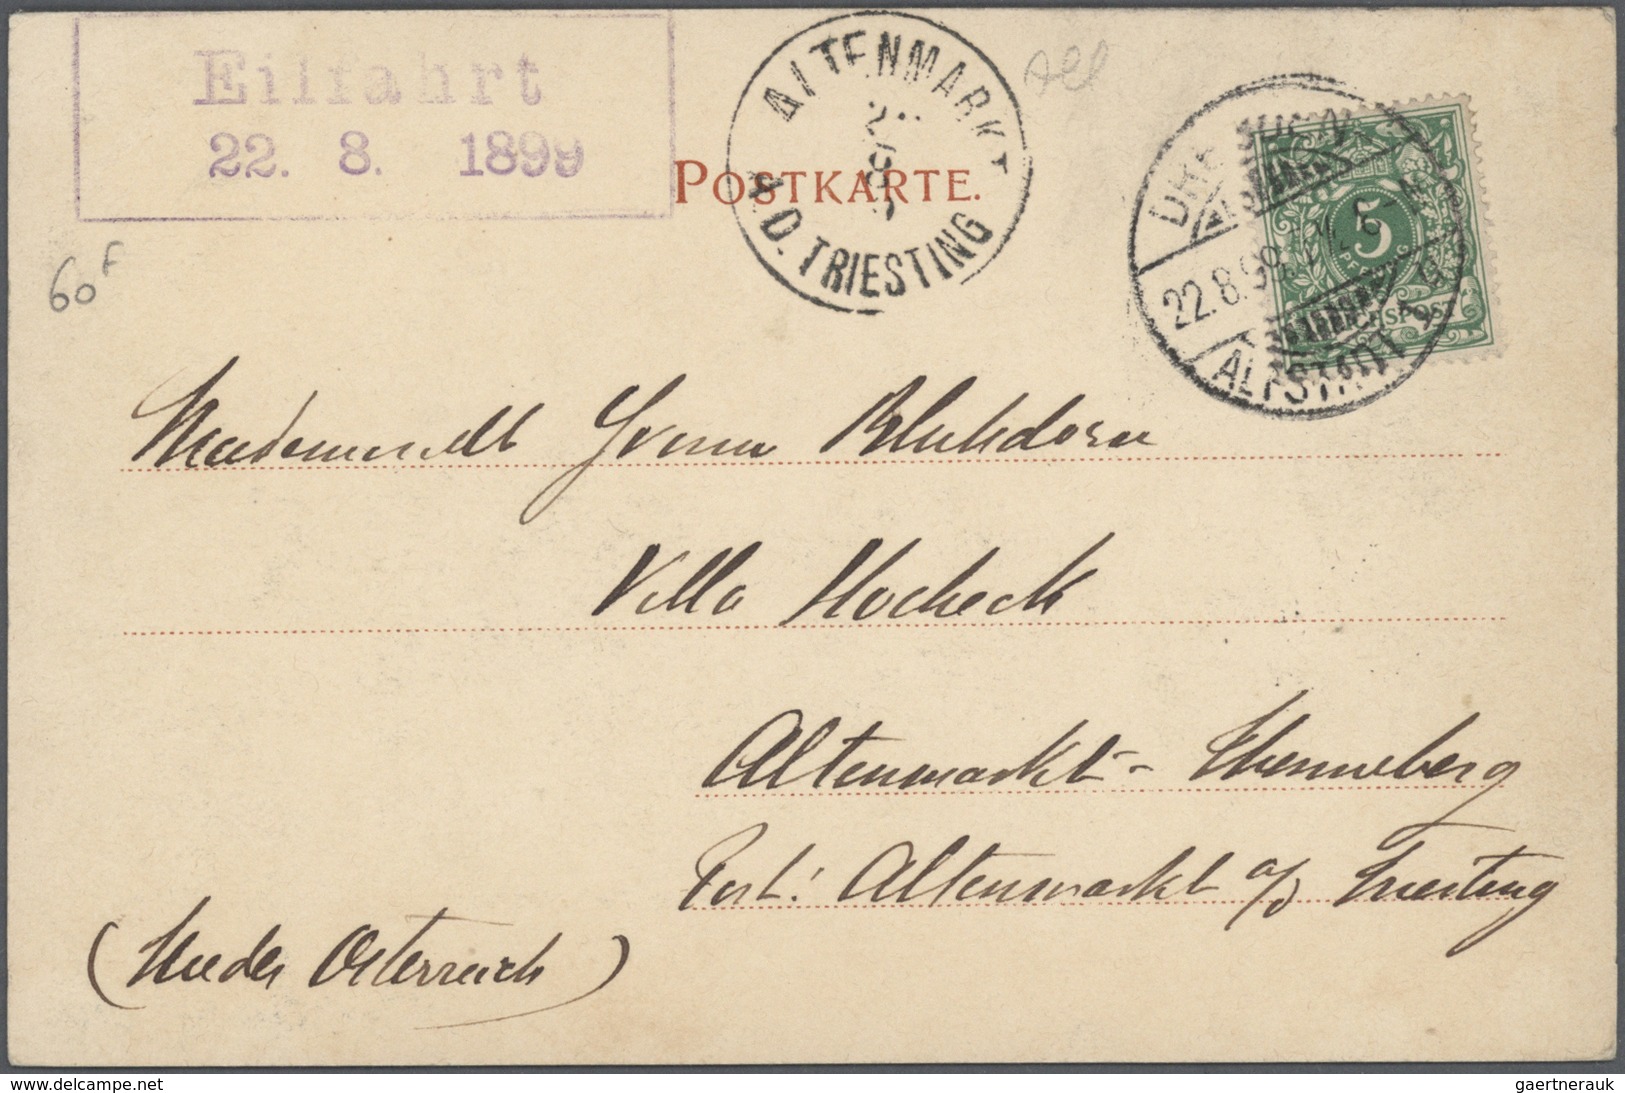 Eilfahrt
22. 8. 1899
ALTENMARKT
A.D. TRIESTING
POSTKARTE.
DRESDEN
22.8.99.
ALTSTADT
5
PF
REICHSPOST
60 F
Mademoiselle Yvonne
Villa Hocheck
Altenmarkt-Thenneberg
Post: Altenmarkt a/d Triesting
(Nieder Österreich)
delcampe.net
gaertnerauk